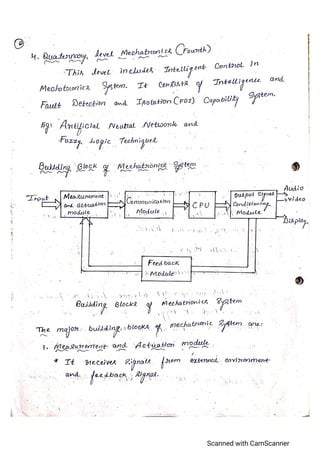 4. Quaternary level Mechatronics (Fourth)
This level includes Intelligent Control in
Mechatronics System. It consists of Intelligence and
Fault Detection and Isolation (FDI) Capability System.
Eg: Artificial Neutral Network and
Fuzzy Logic Technique
Building Block of Mechatronics System
Input
Measurement and actuation module
Communication Module
CPU
Output Signal Conditioning Module
Audio
Video
Display
Feedback Module
Building Blocks of Mechatronics System
The major building blocks of mechatronic System are:
1. Measurement and Actuation module
* It receives Signals from external environment
and feedback Signal.
Scanned with CamScanner